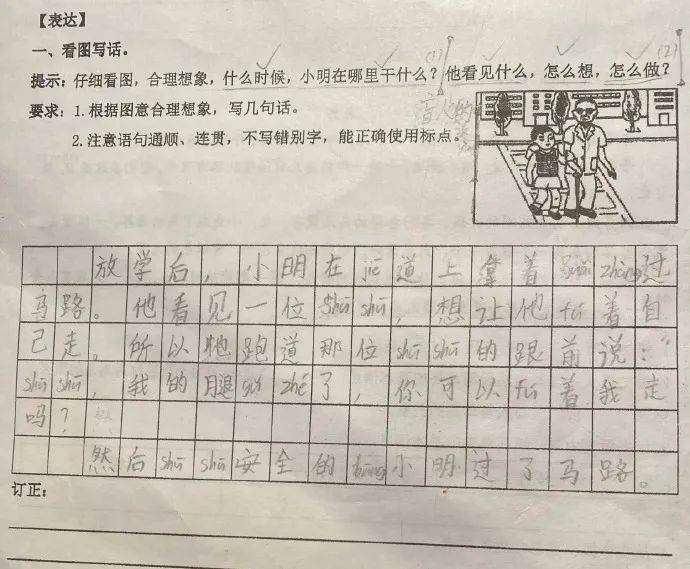 【表达】
一、看图写话。
提示：仔细看图，合理想象，什么时候，小明在哪里干什么？他看见什么，怎么想，怎么做？
(1)
(2)
要求：1.根据图意合理想象，写几句话。
2.注意语句通顺、连贯，不写错别字，能正确使用标点。
放学后，小明在jiē道上拿着zhàng过
马路。他看见一位shū shū，想让他fú着自
己走。所以他跑道那位shū shū的跟前说：“
shū shū，我的腿gǔ zhé了，你可以fú着我走
吗？
然后shū shū安全的bāng小明过了马路。
订正：